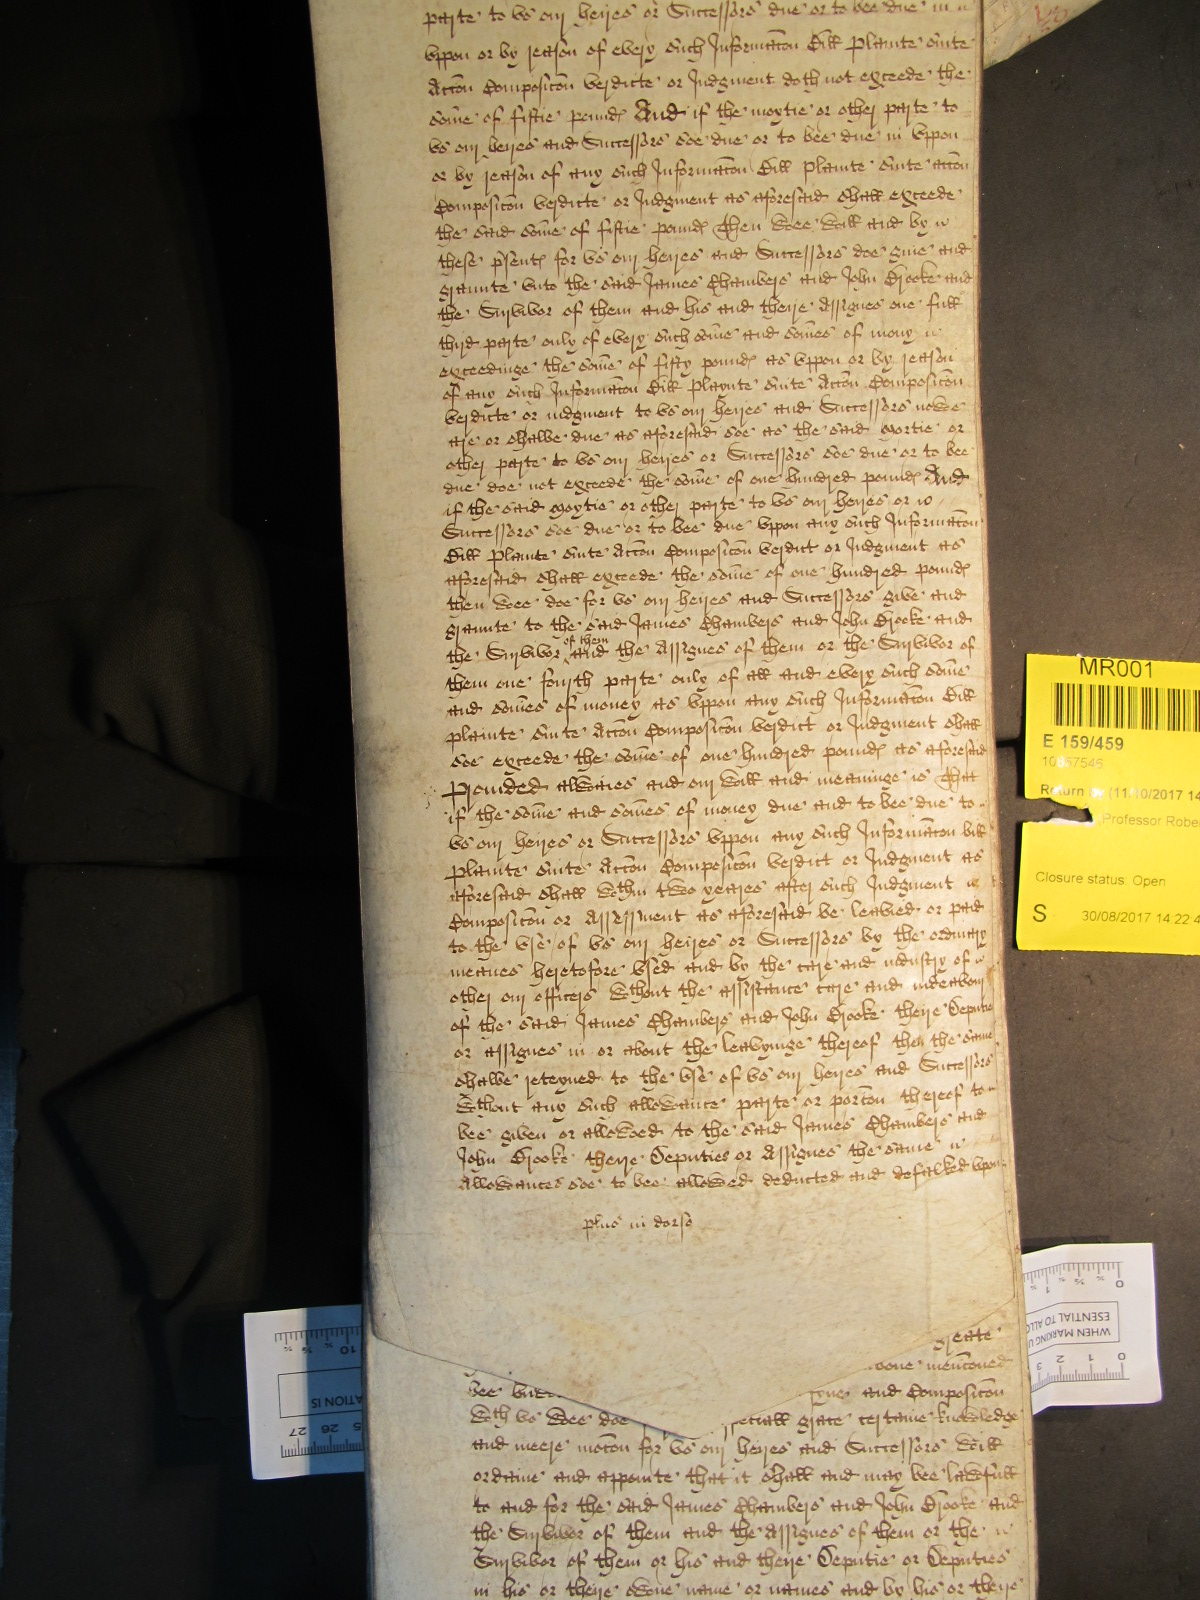 parte to vs our heires or Successors due or to bee due in
vppon or by reason of every such Informacon Bill Plainte suite
Accon Composicon verdicte or Judgment doth not exceede the
some of fiftie pound And if the moytie or other parte to
vs our heires and Successors soe due or to bee due in vppon
or by reason of any such Informacon Bill plainte suite accon
Composicon verdicte or Judgment as aforesaid shall exceede
the said some of fiftie pound Then wee will and by
these psent for vs our heires and Successors doe giue and
graunte vnto the said James Chambers and John Brooke and
the Survivor of them and his and theire Assignes one full
third parte only of every such some and somes of mony
exceedinge the some of fifty pound as vppon or by reason
of any such Informacon Bill playnte suite Accon Composicon
verdicte or iudgment to vs our heires and Successors nowe
are or shalbe due as aforesaid soe as the said moytie or
other parte to vs our heires or Successors soe due or to bee
due doe not exceede the some of one hundred pound And
if the said moytie or other parte to vs our heires or
Successors soe due or to bee due vppon any such Informacon
Bill plainte suite Accon Composicon verdict or Judgment as
aforesaid shall exceede the some of one hundred pound
then wee doe for vs our heires and Successors give and
graunte to the said James Chambers and John Brooke and
the Survivor of them and the Assignes of them or the Survivor of
them one fourth parte only of all and every such some
and somes of money as vppon any such Informacon Bill
plainte suite Accon Composicon verdict or Judgment shall
soe exceede the some of one hundred pound as aforesaid
Prouided alwaies and our will and meaninge is That
if the some and somes of money due and to bee due to
vs our heires or Successors vppon any such Informacon bill
plainte suite Accon Composicon verdict or Judgment as
aforesaid shall wthin two yeares after such Judgment
Composicon or Assessment as aforesaid be leavied or paid
to the vse of vs our heires or Successors by the ordinary
meanes heretofore vsed and by the care and industry of
other our officers wthout the assistance care and indeavour
of the said James Chambers and John Brooke theire Deputies
or assignes in or about the leavyinge thereof then the same
shalbe reteyned to the vse of vs our heires and Successors
wthout any such allowance parte or porcon thereof to
bee given or allowed to the said James Chambers and
John Brooke theire Deputies or Assignes the same
Allowances soe to bee allowed deducted and defalked vpon
plus in dorso
greate
mencioned
bee and Composicon
wth vs wee doe speciall grace certaine knowledge
and meere mocon for vs our heires and Successors will
ordaine and appointe that it shall and may bee lawfull
to and for the said James Chambers and John Brooke and
the Survivor of them and the Assignes of them or the
Survivor of them or his and theire Deputie or Deputies
in his or theire owne name or names and by his or theire
MR001
E 159/459
Return (11/10/2017 14
Professor Rober
Closure status: Open
S 30/08/2017 14:22:4
WHEN MARKING
ESENTIAL TO ALLO
0 1 2 3
10
ATION IS
27 26 25